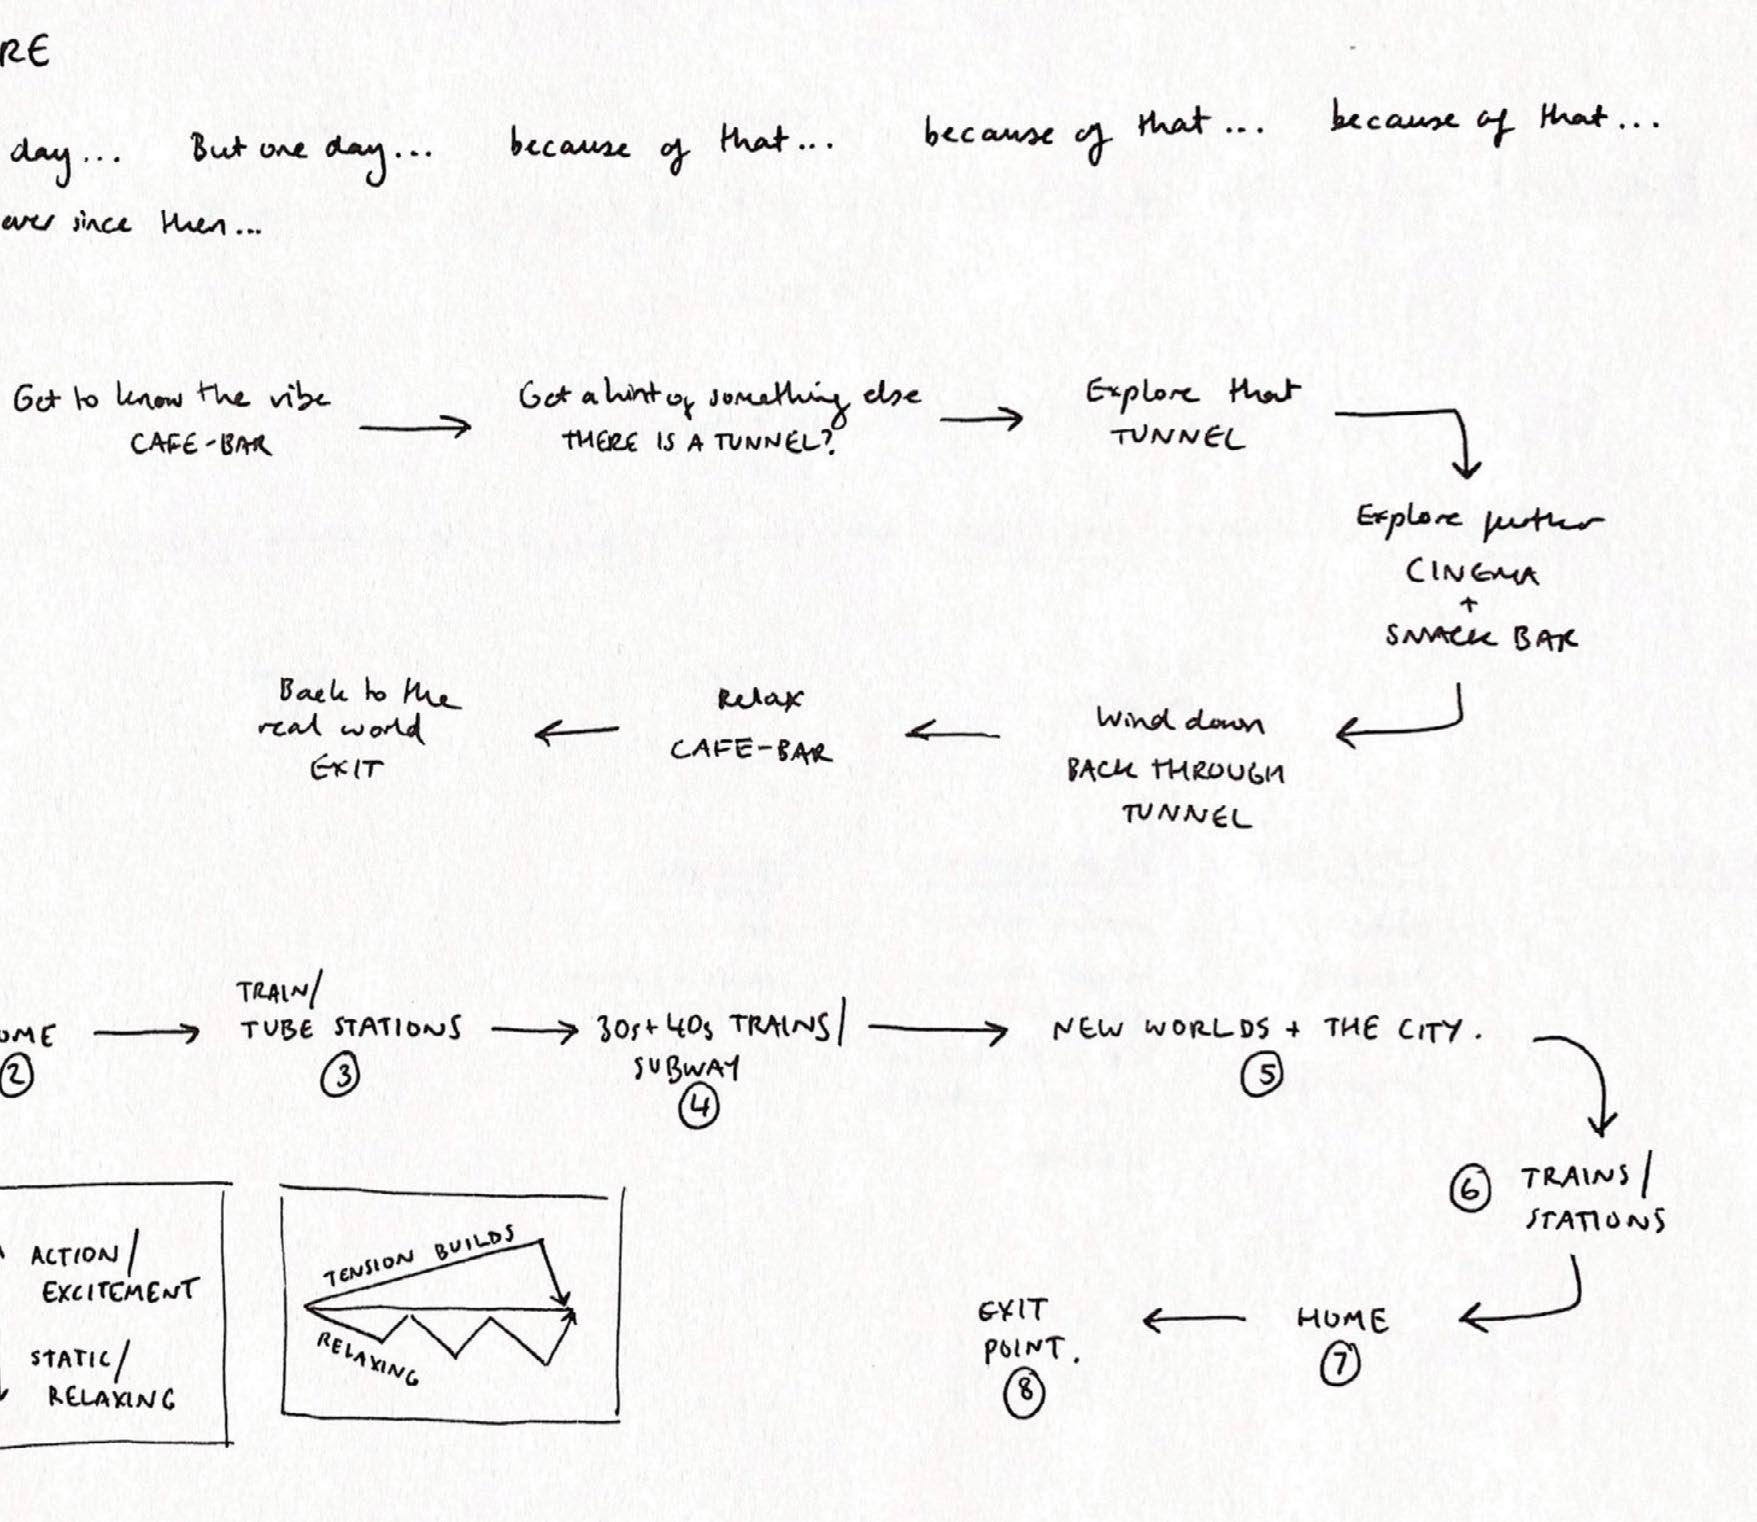 RE
day... But one day... because of that... because of that... because of that...
ever since then...
Get to know the vibe
CAFE-BAR
Get a hint of something else
THERE IS A TUNNEL?
Explore that
TUNNEL
Explore further
CINEMA
+
SNACK BAR
Wind down
BACK THROUGH
TUNNEL
Relax
CAFE-BAR
Back to the
real world
EXIT
OME
2
TRAIN/
TUBE STATIONS
3
30s + 40s TRAINS/
SUBWAY
4
NEW WORLDS + THE CITY.
5
6 TRAINS/
STATIONS
HOME
7
EXIT
POINT.
8
ACTION/
EXCITEMENT
STATIC/
RELAXING
TENSION BUILDS
RELAXING